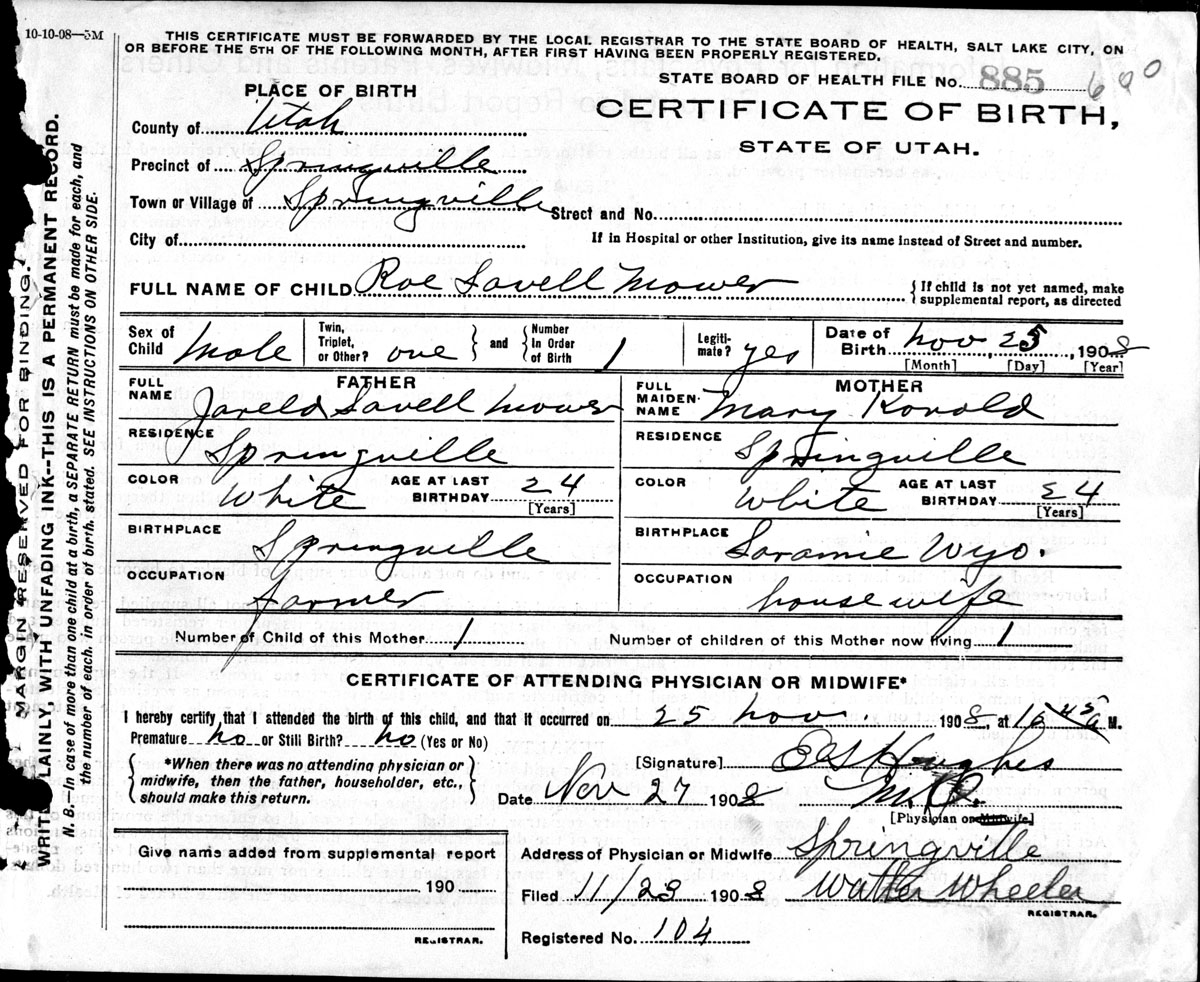 10-10-08—5M
THIS CERTIFICATE MUST BE FORWARDED BY THE LOCAL REGISTRAR TO THE STATE BOARD OF HEALTH, SALT LAKE CITY, ON
OR BEFORE THE 5TH OF THE FOLLOWING MONTH, AFTER FIRST HAVING BEEN PROPERLY REGISTERED.
STATE BOARD OF HEALTH FILE No. 885 690
PLACE OF BIRTH
CERTIFICATE OF BIRTH,
STATE OF UTAH.
County of Utah
Precinct of Springville
Town or Village of Springville Street and No.
City of If in Hospital or other Institution, give its name instead of Street and number.
FULL NAME OF CHILD Roe Lavell Mower {If child is not yet named, make
supplemental report, as directed
Sex of Child Male Twin, Triplet, or Other? one } and { Number In Order of Birth 1 Legiti-mate? yes Date of Birth Nov, 25, 1908
[Month] [Day] [Year]
FATHER MOTHER
FULL NAME Lavell Mower FULL MAIDEN-NAME Mary
RESIDENCE Springville RESIDENCE Springville
COLOR White AGE AT LAST BIRTHDAY 24 COLOR White AGE AT LAST BIRTHDAY 24
[Years] [Years]
BIRTHPLACE Springville BIRTHPLACE Laramie Wyo.
OCCUPATION farmer OCCUPATION housewife
Number of Child of this Mother 1 Number of children of this Mother now living 1
CERTIFICATE OF ATTENDING PHYSICIAN OR MIDWIFE*
I hereby certify that I attended the birth of this child, and that it occurred on 25 Nov. 1908, at M.
Premature no or Still Birth? no (Yes or No)
*When there was no attending physician or
midwife, then the father, householder, etc.,
should make this return.
[Signature] Hughes
Date Nov 27 1908 M.D.
[Physician or Midwife]
Give name added from supplemental report
190
REGISTRAR.
Address of Physician or Midwife Springville
Filed 11/28 1908 Walter Wheeler
REGISTRAR.
Registered No. 104
MARGIN RESERVED FOR BINDING.
LAINLY, WITH UNFADING INK--THIS IS A PERMANENT RECORD.
N. B.—In case of more than one child at a birth, a SEPARATE RETURN must be made for each, and
the number of each, in order of birth, stated. SEE INSTRUCTIONS ON OTHER SIDE.